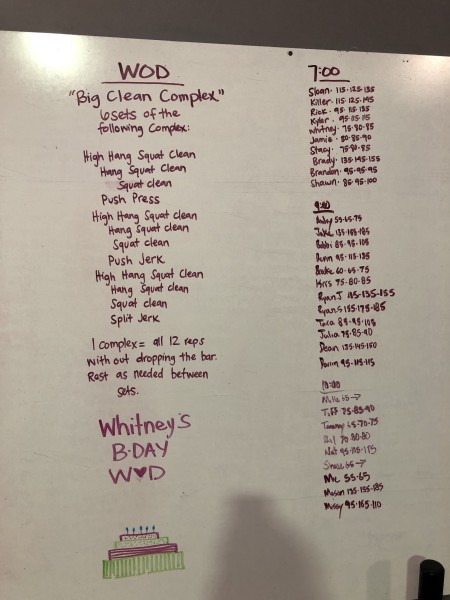 WOD
"Big Clean Complex"
6 sets of the
following Complex:
High Hang Squat Clean
Hang Squat Clean
Squat clean
Push Press
High Hang Squat Clean
Hang Squat Clean
Squat clean
Push Jerk
High Hang Squat Clean
Hang Squat Clean
Squat clean
Split Jerk
1 complex = all 12 reps
with out dropping the bar.
Rest as needed between
sets.
Whitney's
B-DAY
W♥D
7:00
Sloan· 115·125·135
Killer· 115·125·145
Rick· 95·115·135
Kyler· 95·115·115
Whitney· 75·80·85
Jamie· 80·85·90
Stacy· 75·80·85
Brady· 135·145·155
Brandon· 95·95·95
Shawn· 85·95·100
9:00
55·65·75
Jake 135·155·185
Bobbi 85·95·105
95·115·135
60·65·75
Kris 75·80·85
Ryan J 115·135·155
Ryan S 155·175·185
Tara 85·95·105
Julia 75·85·90
Dean 135·145·150
95·115·115
10:00
65→
Tiff 75·85·90
Tammy 65·70·75
70·80·80
Nat 95·105·115
65→
55·65
Mason 135·155·185
Missy 95·105·110